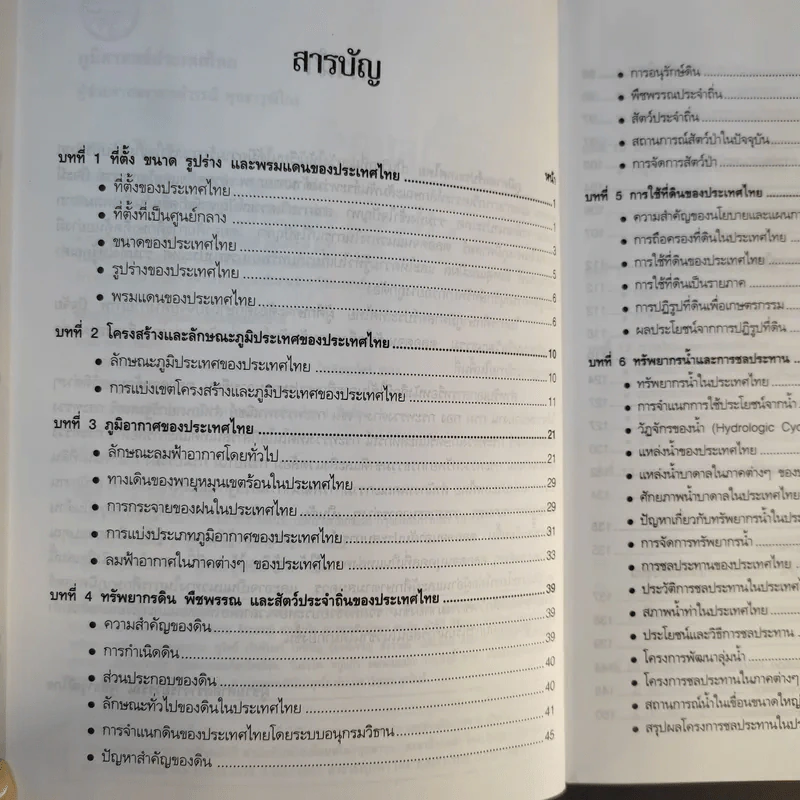 สารบัญ
หน้า
บทที่ 1 ที่ตั้ง ขนาด รูปร่าง และพรมแดนของประเทศไทย 1
• ที่ตั้งของประเทศไทย 1
• ที่ตั้งที่เป็นศูนย์กลาง 3
• ขนาดของประเทศไทย 5
• รูปร่างของประเทศไทย 6
• พรมแดนของประเทศไทย 6
บทที่ 2 โครงสร้างและลักษณะภูมิประเทศของประเทศไทย 10
• ลักษณะภูมิประเทศของประเทศไทย 10
• การแบ่งเขตโครงสร้างและภูมิประเทศของประเทศไทย 11
บทที่ 3 ภูมิอากาศของประเทศไทย 21
• ลักษณะลมฟ้าอากาศโดยทั่วไป 21
• ทางเดินของพายุหมุนเขตร้อนในประเทศไทย 29
• การกระจายของฝนในประเทศไทย 29
• การแบ่งประเภทภูมิอากาศของประเทศไทย 31
• ลมฟ้าอากาศในภาคต่างๆ ของประเทศไทย 33
บทที่ 4 ทรัพยากรดิน พืชพรรณ และสัตว์ประจำถิ่นของประเทศไทย 39
• ความสำคัญของดิน 39
• การกำเนิดดิน 39
• ส่วนประกอบของดิน 40
• ลักษณะทั่วไปของดินในประเทศไทย 40
• การจำแนกดินของประเทศไทยโดยระบบอนุกรมวิธาน 41
• ปัญหาสำคัญของดิน 45
• การอนุรักษ์ดิน
• พืชพรรณประจำถิ่น
• สัตว์ประจำถิ่น
• สถานการณ์สัตว์ป่าในปัจจุบัน
• การจัดการสัตว์ป่า
บทที่ 5 การใช้ที่ดินของประเทศไทย
• ความสำคัญของนโยบายและแผนกา
• การถือครองที่ดินในประเทศไทย
• การใช้ที่ดินของประเทศไทย
• การใช้ที่ดินเป็นรายภาค
• การปฏิรูปที่ดินเพื่อเกษตรกรรม
• ผลประโยชน์จากการปฏิรูปที่ดิน
บทที่ 6 ทรัพยากรน้ำและการชลประทาน
• ทรัพยากรน้ำในประเทศไทย
• การจำแนกการใช้ประโยชน์จากน้ำ
• วัฏจักรของน้ำ (Hydrologic Cyc
• แหล่งน้ำของประเทศไทย
• แหล่งน้ำบาดาลในภาคต่างๆ ของป
• ศักยภาพน้ำบาดาลในประเทศไทย
• ปัญหาเกี่ยวกับทรัพยากรน้ำในประ
• การจัดการทรัพยากรน้ำ
• การชลประทานของประเทศไทย
• ประวัติการชลประทานในประเทศไ
• สภาพน้ำท่าในประเทศไทย
• ประโยชน์และวิธีการชลประทาน
• โครงการพัฒนาลุ่มน้ำ
• โครงการชลประทานในภาคต่างๆ
• สถานการณ์น้ำในเขื่อนขนาดใหญ่
• สรุปผลโครงการชลประทานในปร